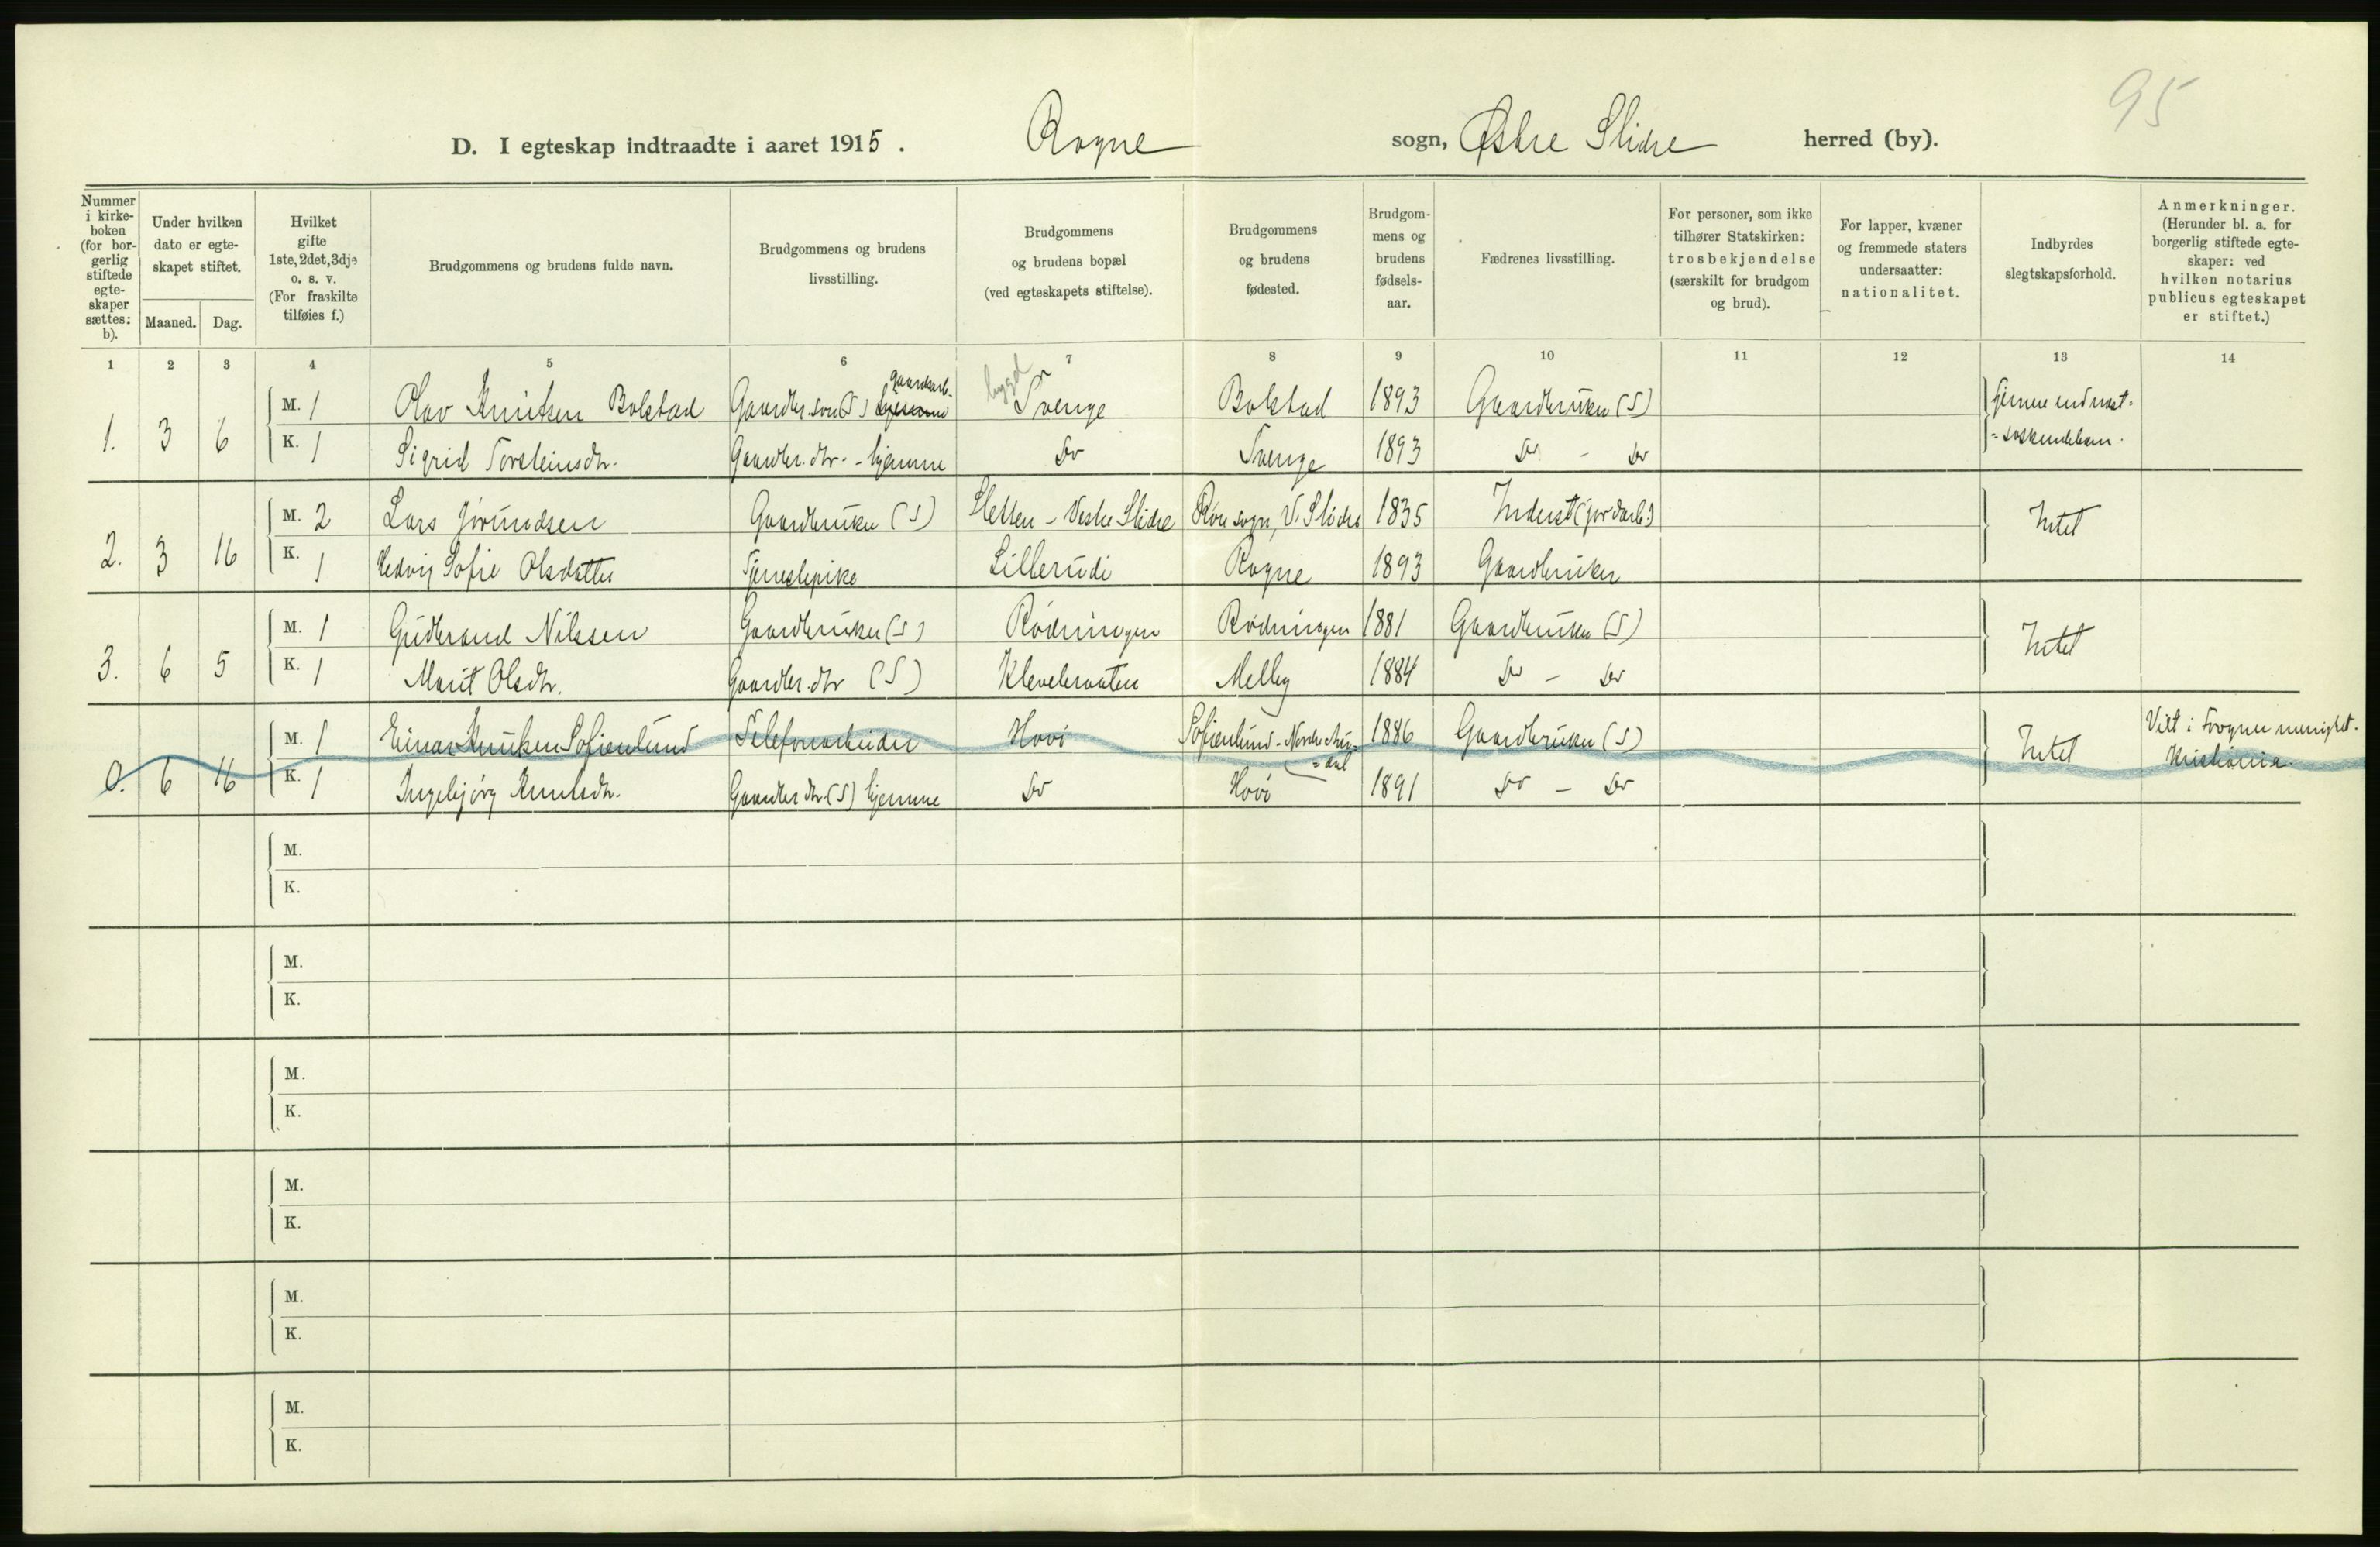 95
D. I egteskap indtraadte i aaret 1915. Rogne sogn, Østre Slidre herred (by).
Nummer i kirke- boken (for bor- gerlig stiftede egte- skaper sættes: b).
Under hvilken dato er egte- skapet stiftet.
Maaned. Dag.
Hvilket gifte 1ste, 2det, 3dje o. s. v. (For fraskilte tilføies f.)
Brudgommens og brudens fulde navn.
Brudgommens og brudens livsstilling.
Brudgommens og brudens bopæl (ved egteskapets stiftelse).
Brudgommens og brudens fødested.
Brudgom- mens og brudens fødsels- aar.
Fædrenes livsstilling.
For personer, som ikke tilhører Statskirken: trosbekjendelse (særskilt for brudgom og brud).
For lapper, kvæner og fremmede staters undersaatter: nationalitet.
Indbyrdes slegtskapsforhold.
Anmerkninger. (Herunder bl. a. for borgerlig stiftede egte- skaper: ved hvilken notarius publicus egteskapet er stiftet.)
1 2 3 4 5 6 7 8 9 10 11 12 13 14
1. 3 6 M. 1 Olav Knutsen Bolstad Gaardbr. søn (S) hjemme gaardsarb. bygd Svenge Bolstad 1893 Gaardbruker (S) fjernere end næst-
K. 1 Sigrid Torsteinsdtr. Gaardbr. dtr. - hjemme Do Svenge 1893 Do - Do = søskendebarn.
2. 3 16 M. 2 Lars Jørundsen Gaardbruker (S) Sletten - Vestre Slidre Røn sogn, V. Slidre 1835 Inderst (jordarb.) Intet
K. 1 Hedvig Sofie Olsdatter Tjenestepike Lillerudi Rogne 1893 Gaardbruker
3. 6 5 M. 1 Gudbrand Nilssen Gaardbruker (S) Rødningen Rødningen 1881 Gaardbruker (S) Intet
K. 1 Marit Olsdtr. Gaardbr. dtr (S) Klevebraaten Melby 1884 Do - Do
0. 6 16 M. 1 Einar Knutsen Sofienlund Telefonarbeider Hovi Sofienlund - Nordre Aur- = dal 1886 Gaardbruker (S) Intet Viet i Frogner menighet. Kristiania.
K. 1 Ingebjørg Knutsdtr. Gaardbr dtr. (S) hjemme Do Hovi 1891 Do - Do
M.
K.
M.
K.
M.
K.
M.
K.
M.
K.
M.
K.